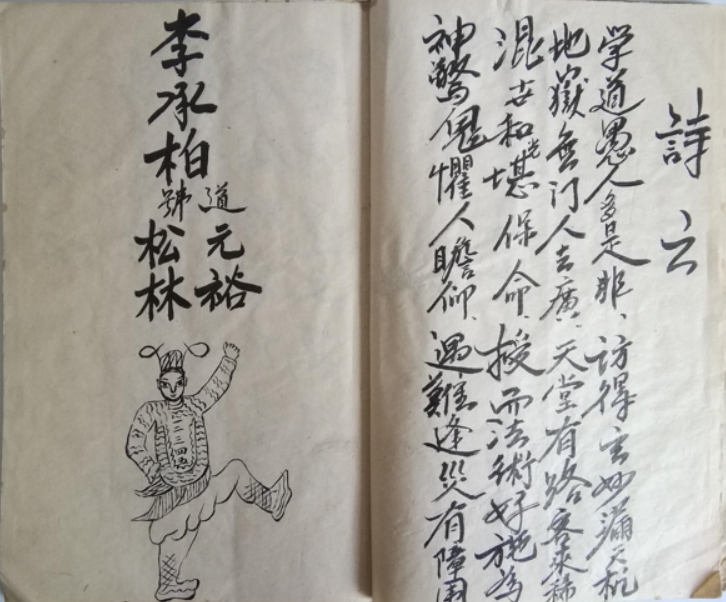 詩云
学道愚人多是非、访得玄妙滿天机
地嶽無门人去廣、天堂有路客來稀
混世和光堪保命、授而法術好施為
神驚鬼懼人瞻仰、遇難逢災有障
李承柏
道元裕
號松林